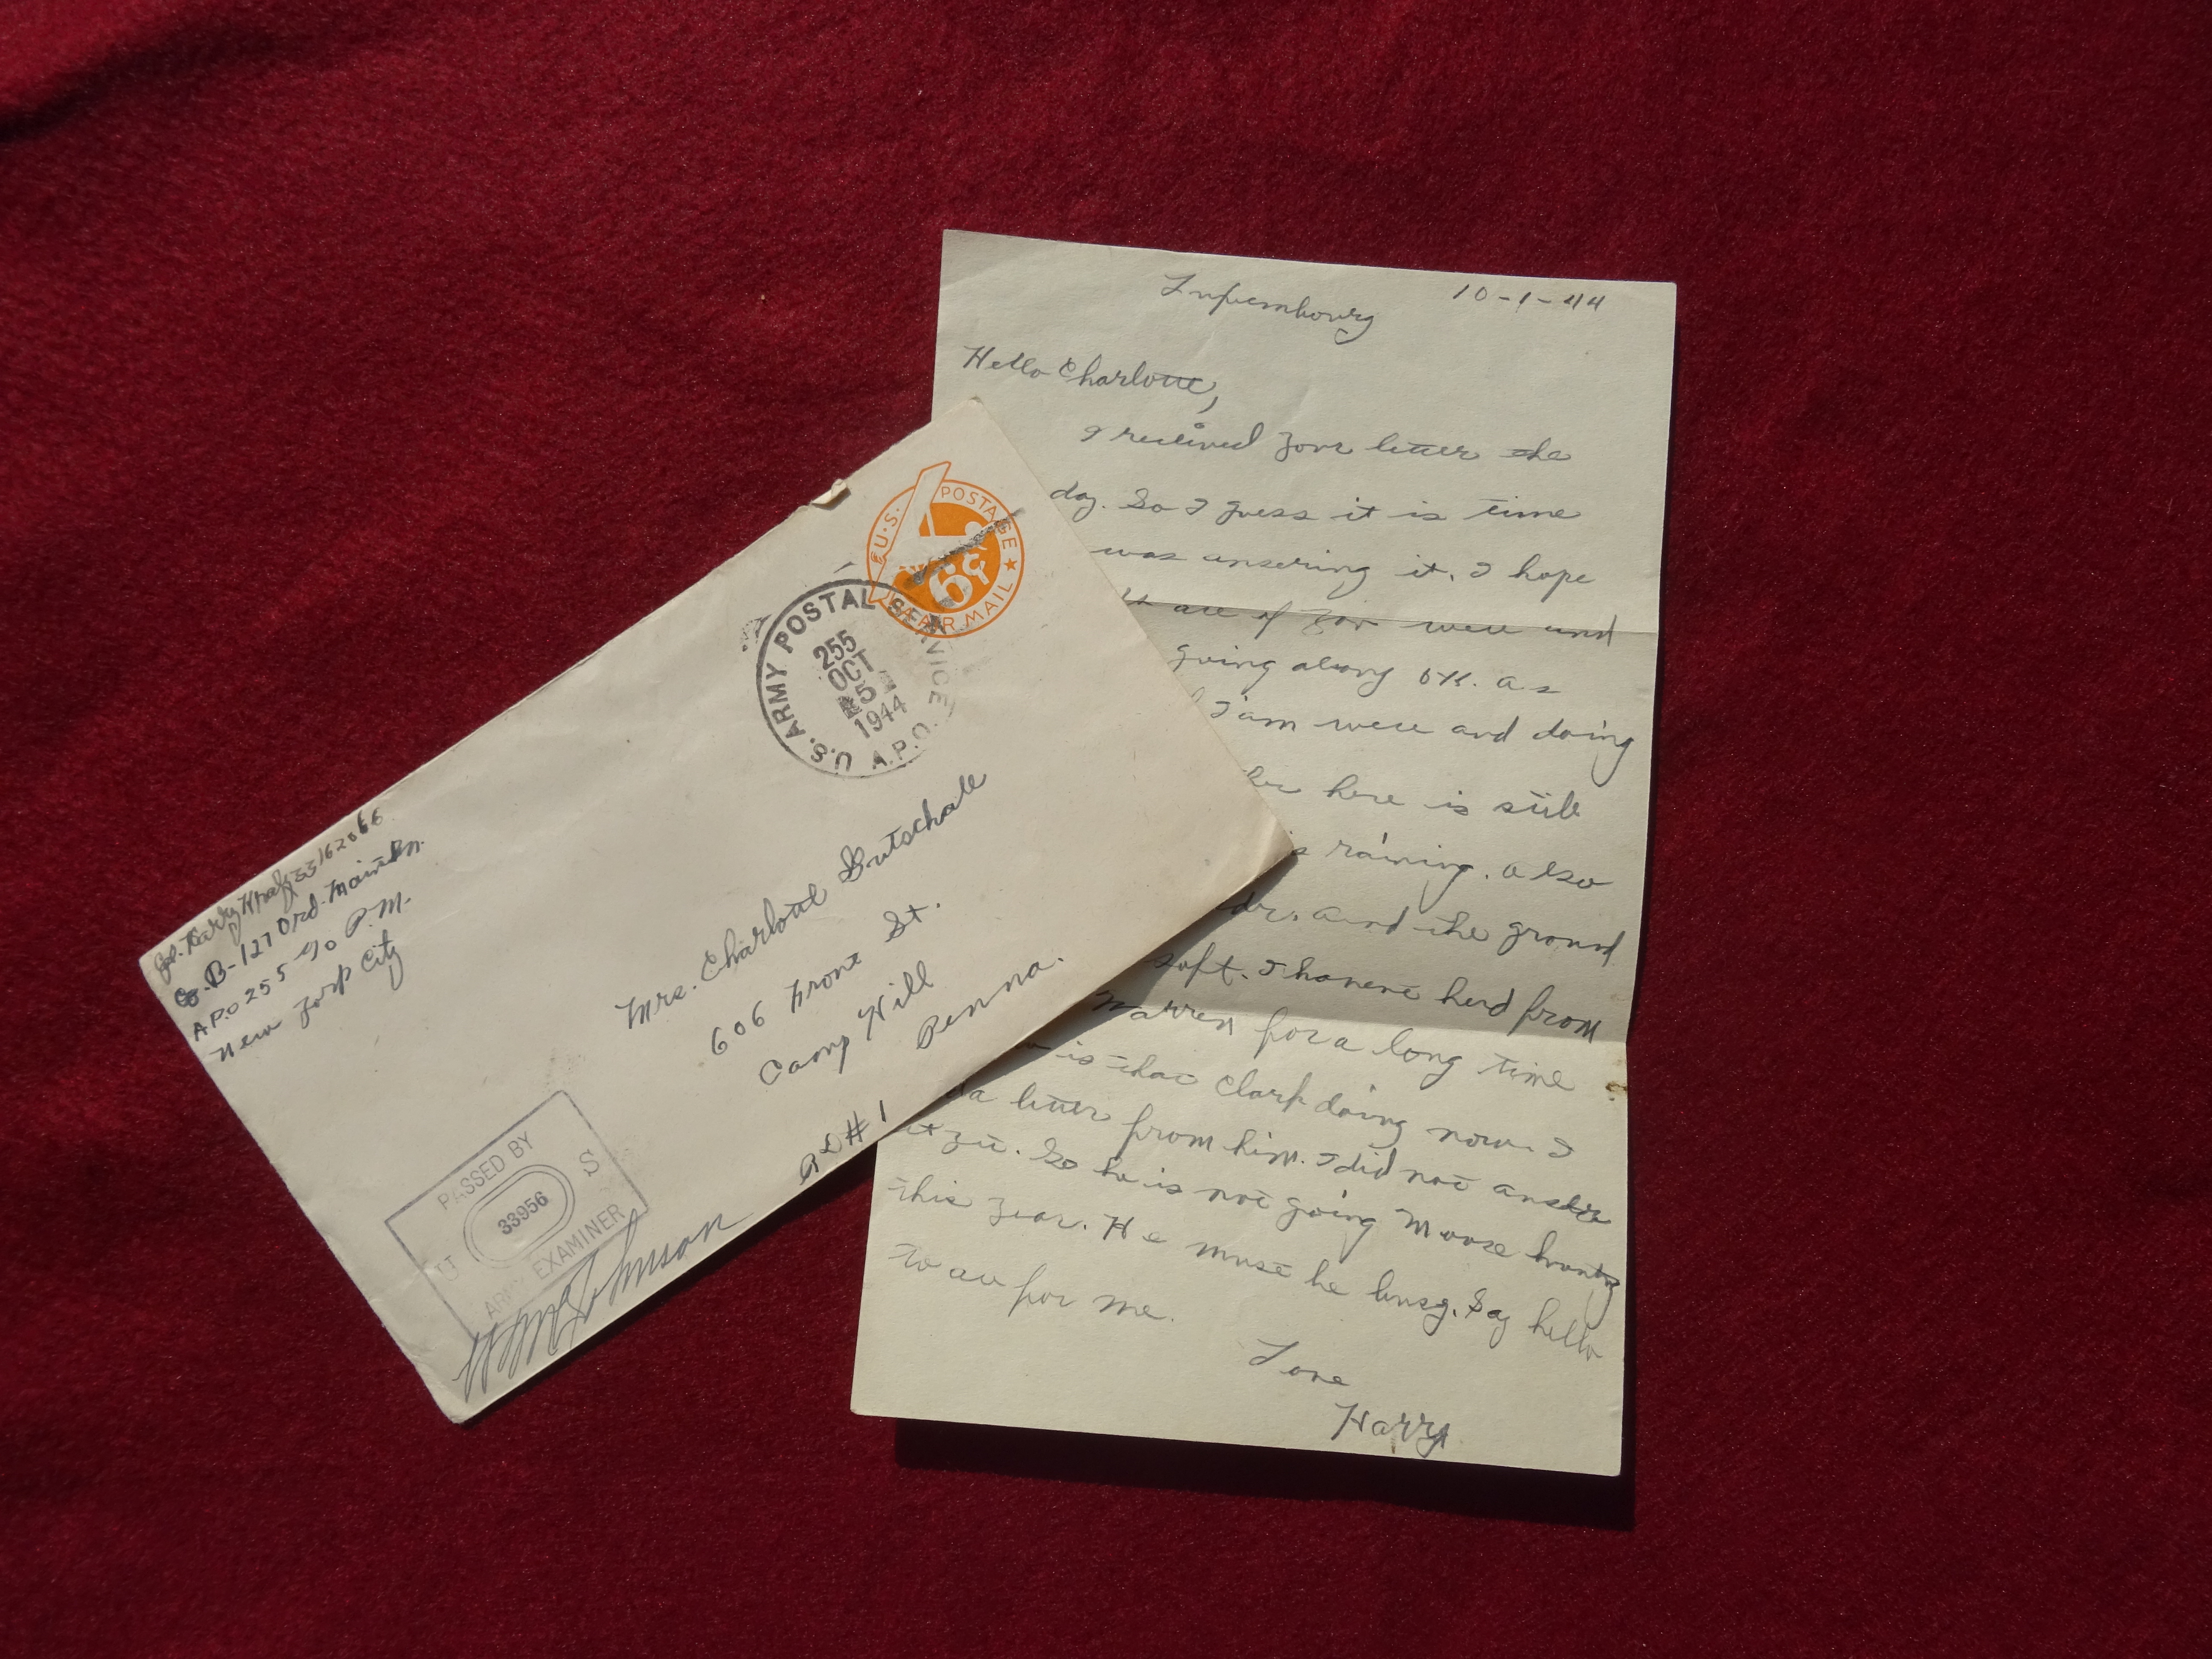 Cpl. Harry Kraft 33162066
Co. B-127 Ord. Maint. Bn.
A.P.O 255 % P.M.
New York City
U.S. POSTAGE
6¢
AIR MAIL
U.S. ARMY POSTAL SERVICE
255
OCT
5
1944
A.P.O.
Mrs. Charlotte Gutschall
606 Front St.
Camp Hill
Penna.
RD#1
PASSED BY
U 33956 S
ARMY EXAMINER
Johnson
Luxembourg 10-1-44
Hello Charlotte,
I recieved your letter the
day. So I guess it is time
was ansering it. I hope
all of you well and
going along OK. as
I'am well and doing
here is still
raining. also
and the ground
soft. I havent herd from
Warren for a long time
is that Clark doing now. I
a letter from him. I did not answer
it yet. So he is not going Moose hunting
this year. He must be busy. Say hello
to all for me.
Love
Harry